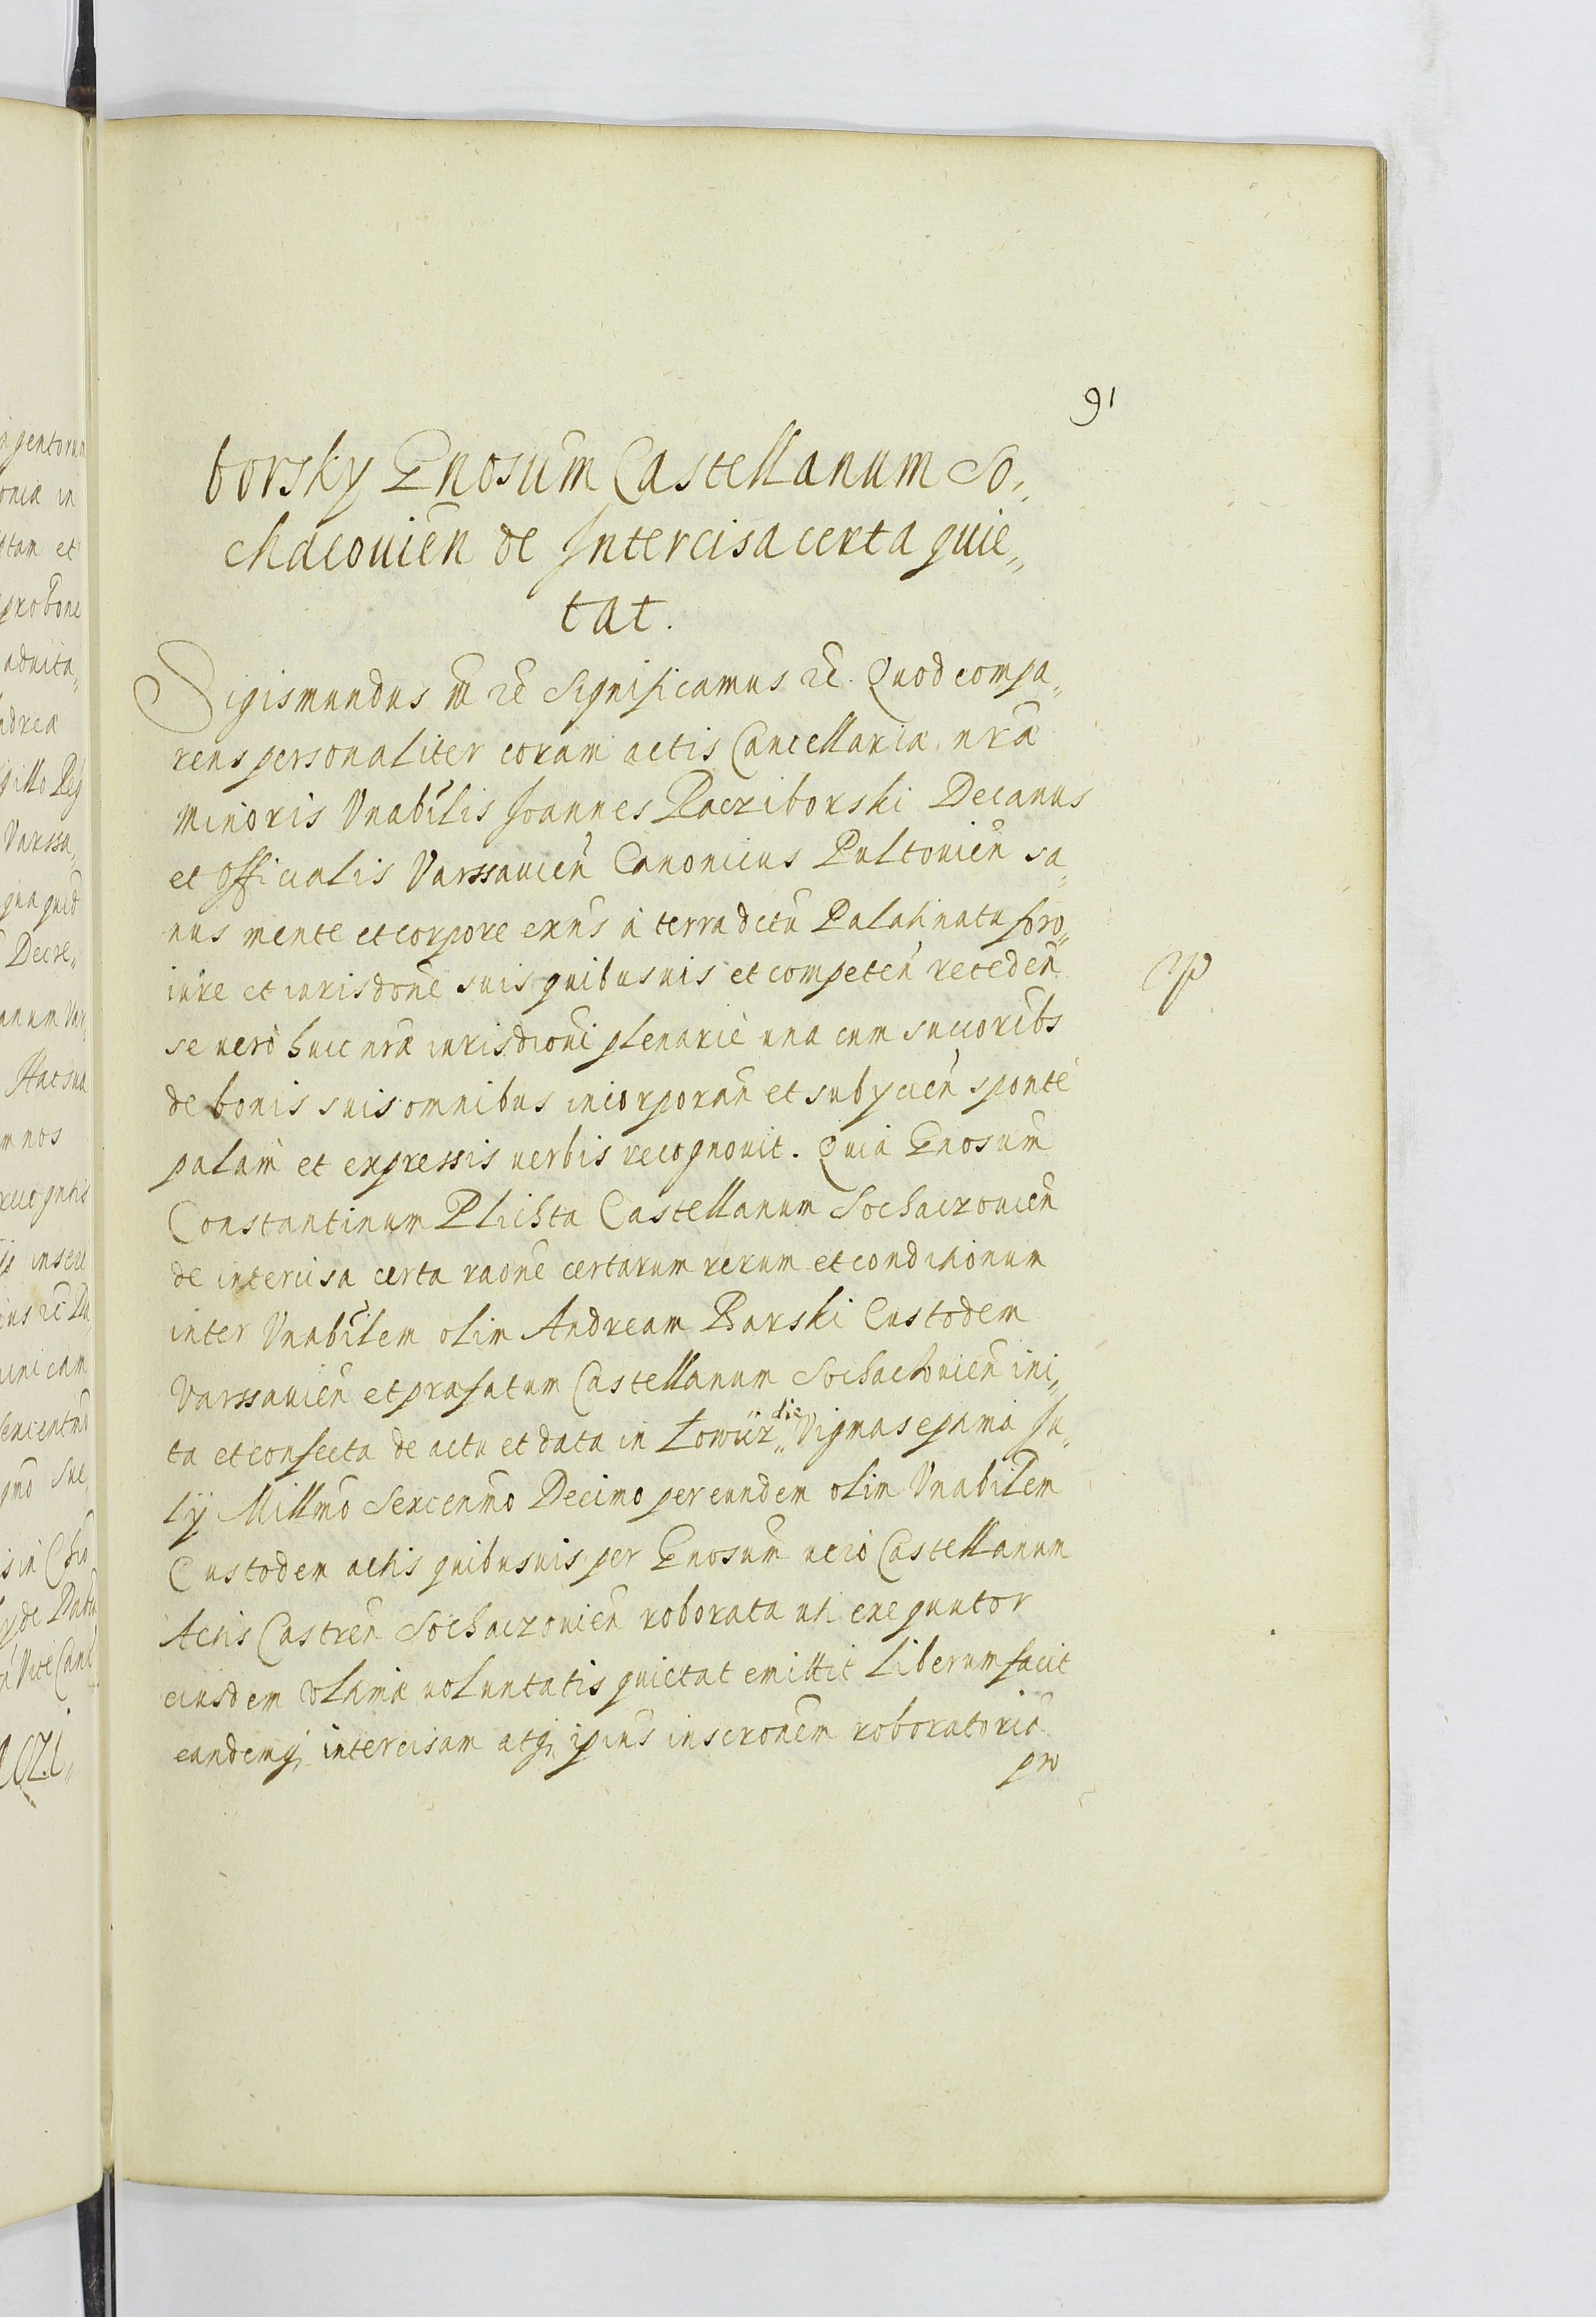 91
borsky Gnosum Castellanum So„
chacouien de Intercisa certa quie„
tat.
Sigismundus III etc Significamus etc. Quod compa„
rens personaliter coram actis Cancellariæ nrã
minoris Vnabilis Joannes Racziborski Decanus
et Officialis Varssauien Canonicus Pultouien sa„
nus mente et corpore exns à terra dctũ Palatinatu foro„
iure et iurisdone suis quibusuis et competen receden
se uerò huic nræ iurisdioni plenariè una cum succoribs
de bonis suis omnibus incorporan et subycien sponte
palam et expressis uerbis recognouit. Quia Gnosum
Constantinum Plichta Castellanum Sochaczouien
de intercisa certa raone certarum rerum et conditionum
inter Vnabilem olim Andream Barski Custodem
Varssauien et præfatum Castellanum Sochachouien ini„
ta et confecta de actu et data in Łowicz die Vigmaseptima Ju„
lÿ Millmo Sexcenmo Decimo per eundem olim Vnabilem
Custodem actis quibusuis per Gnosum uero Castellanum
Actis Castren Sochaczouien roborata uti exequutor
eiusdem vltimæ uoluntatis quietat emittit liberum facit
eandemq; intercisam atq; ipius inscronem roboratoriã
pro